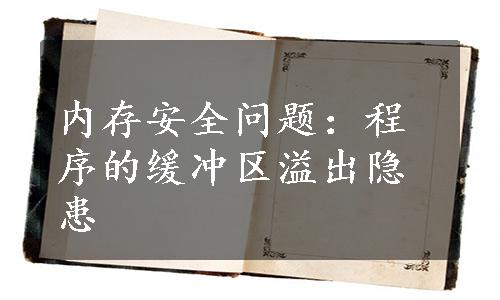 内存安全问题：程
序的缓冲区溢出隐
患